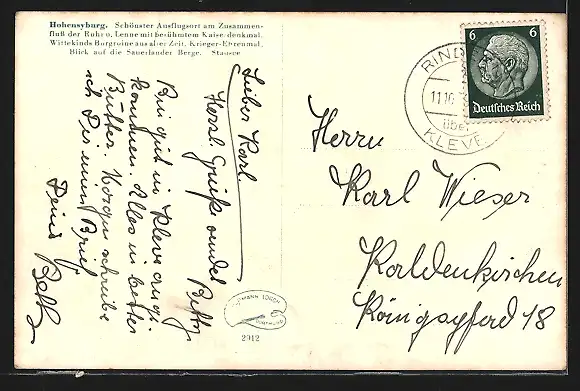 Hohensyburg. Schönster Ausflugsort am Zusammen-
fluß der Ruhr u. Lenne mit berühmtem Kaiserdenkmal.
Wittekinds Burgruine aus alter Zeit. Krieger-Ehrenmal.
Blick auf die Sauerländer Berge. Stausee
Lieber Karl.
Herzl. Grüße sendet Betty
Bin gut in Kleve ange-
kommen. Alles in bester
Butter. Morgen schreibe
ich Dir einen Brief.
Deine Betty
2912
RIND
11.10.
über
KLEVE
6 6
Deutsches Reich
Herrn
Karl Wieser
Kaldenkirchen
Königspfad 18